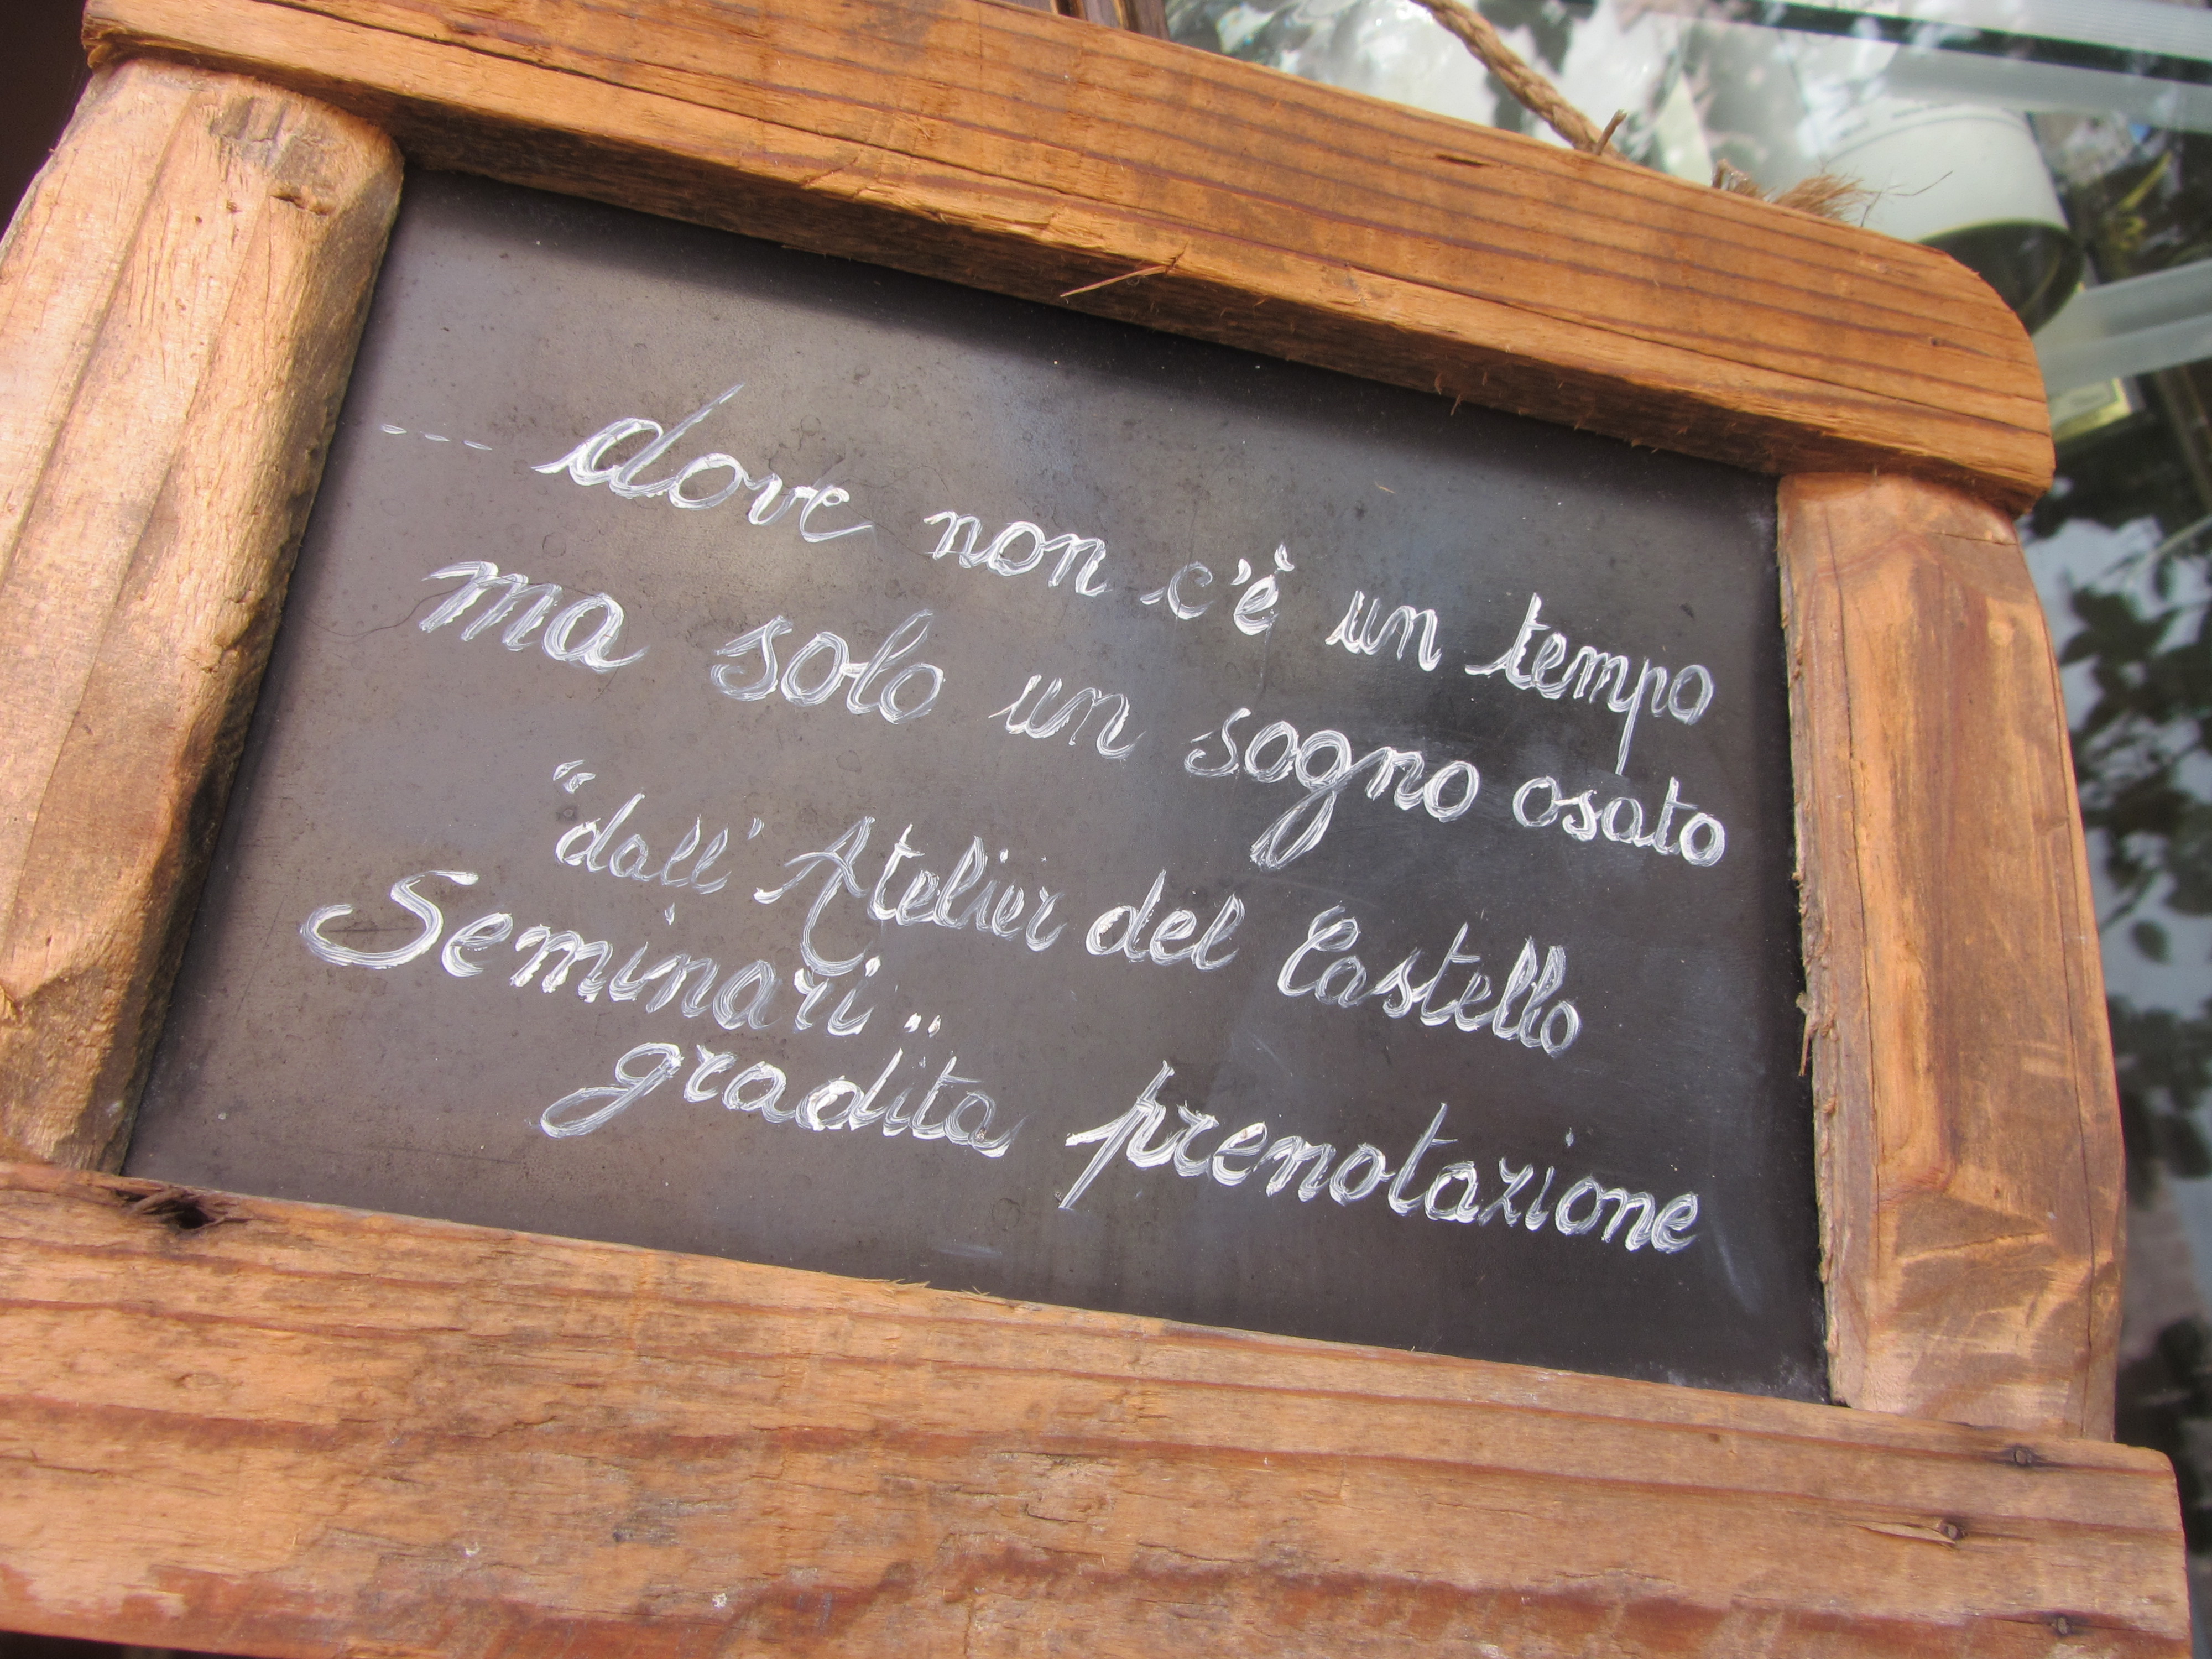 ---- dove non c'è un tempo
ma solo un sogno osato
"dall' Atelier del Castello
Seminari..
gradita prenotazione